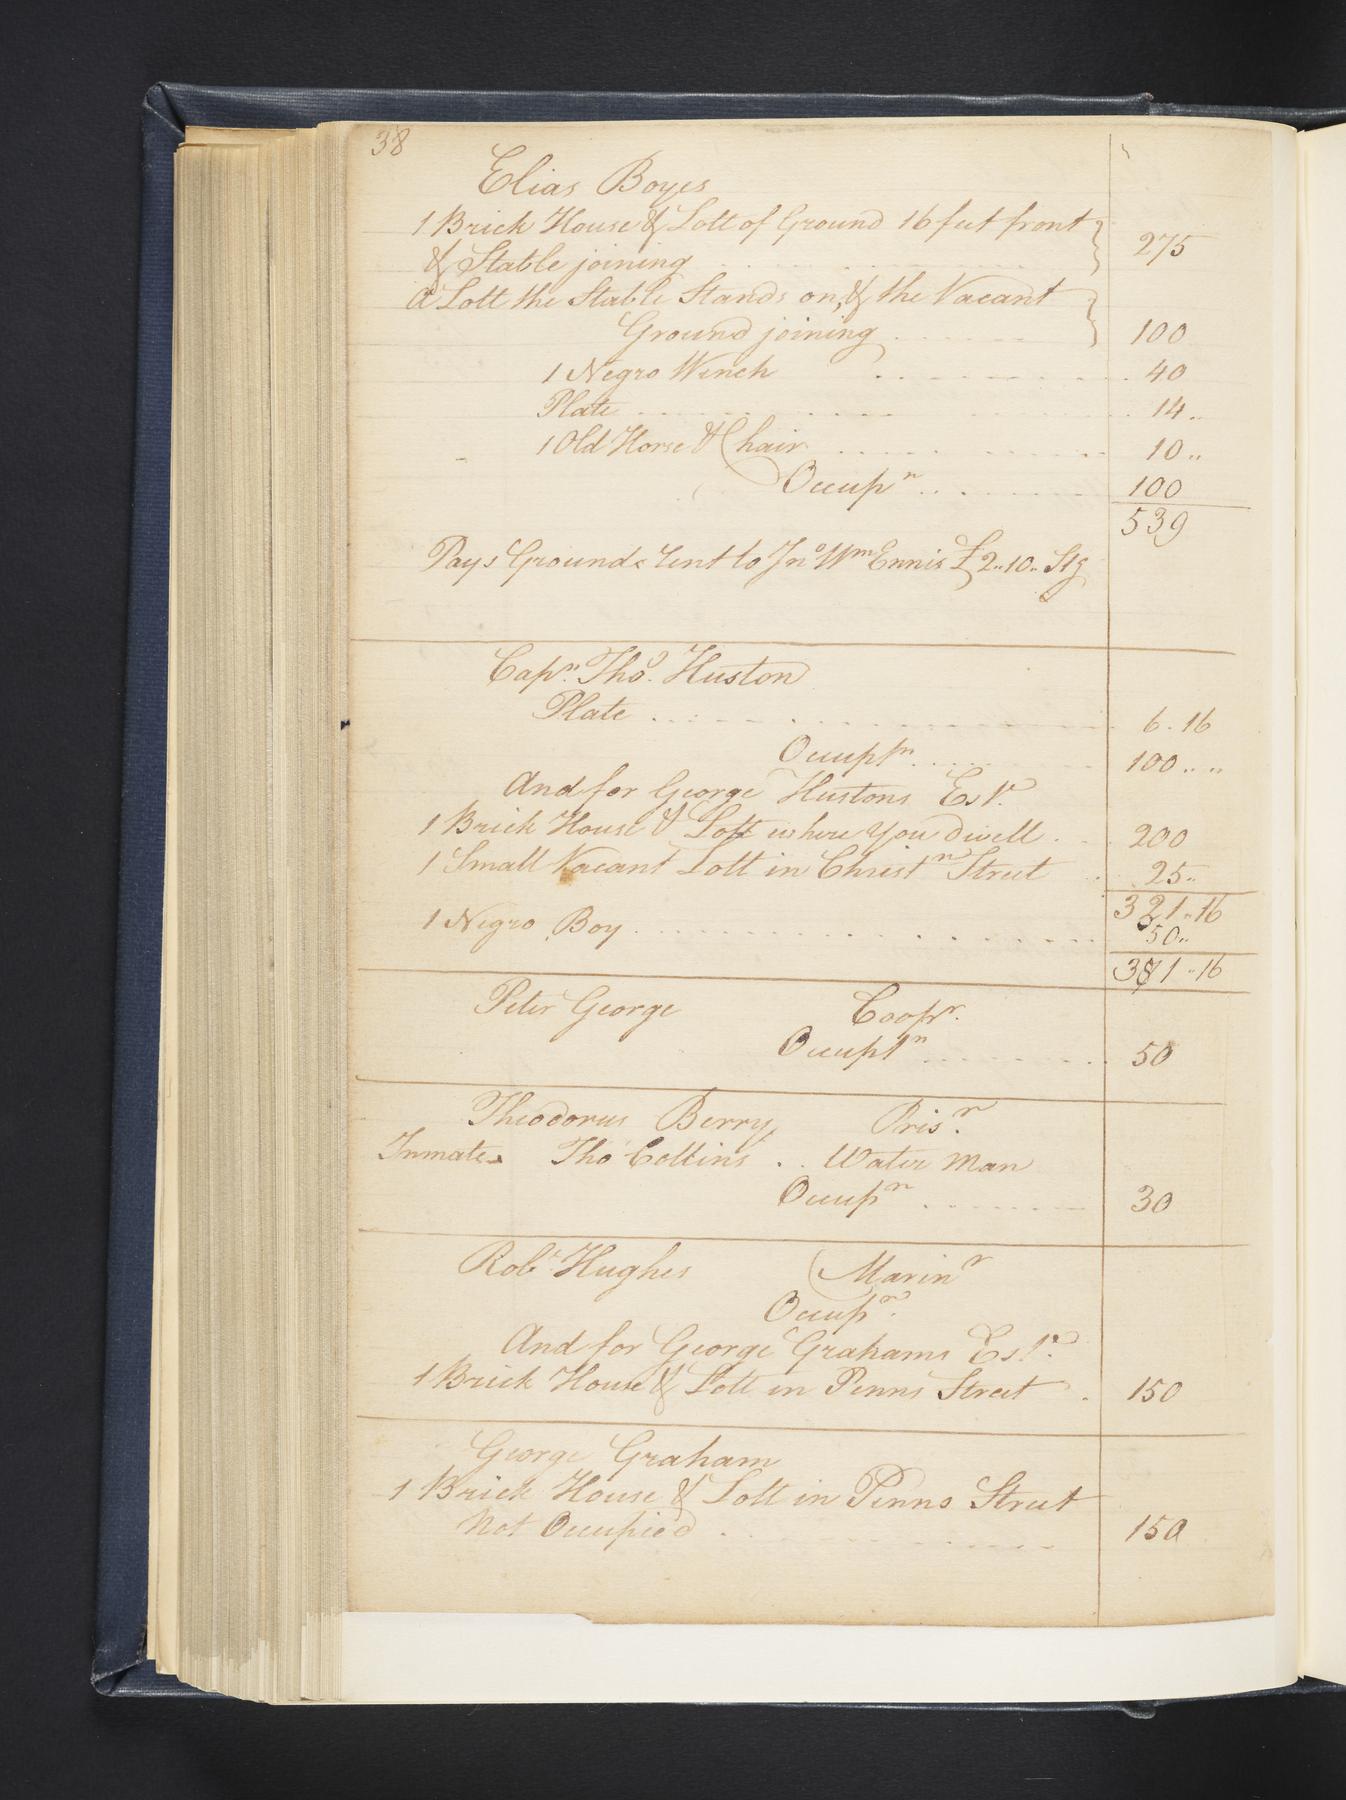 38
Elias Boyes
1 Brick House & Lott of Ground 16 feet front
& Stable joining 275
a Lott the Stable Stands on, & the Vacant
Ground joining 100
1 Negro Wench 40
Plate 14
1 Old Horse & Chair 10
Occupn 100
539
Pays Ground rent to Jno Wm Ennis £2..10.. Stg
Capn. Tho. Huston
Plate 6.16
Occuptn 100
And for George Hustons Estt.
1 Brick House & Lott where You dwell 200
1 Small Vacant Lott in Christn Street 25
321..16
1 Negro Boy 50
371..16
Peter George Coopr.
Occuptn 50
Theodorus Berry Prisr.
Inmate Tho Collins Water Man
Occupn 30
Robt Hughes Marinr
Occupn.
And for George Grahams Estt.
1 Brick House & Lott in Penns Street 150
George Graham
1 Brick House & Lott in Penns Street
Not Occupied 150